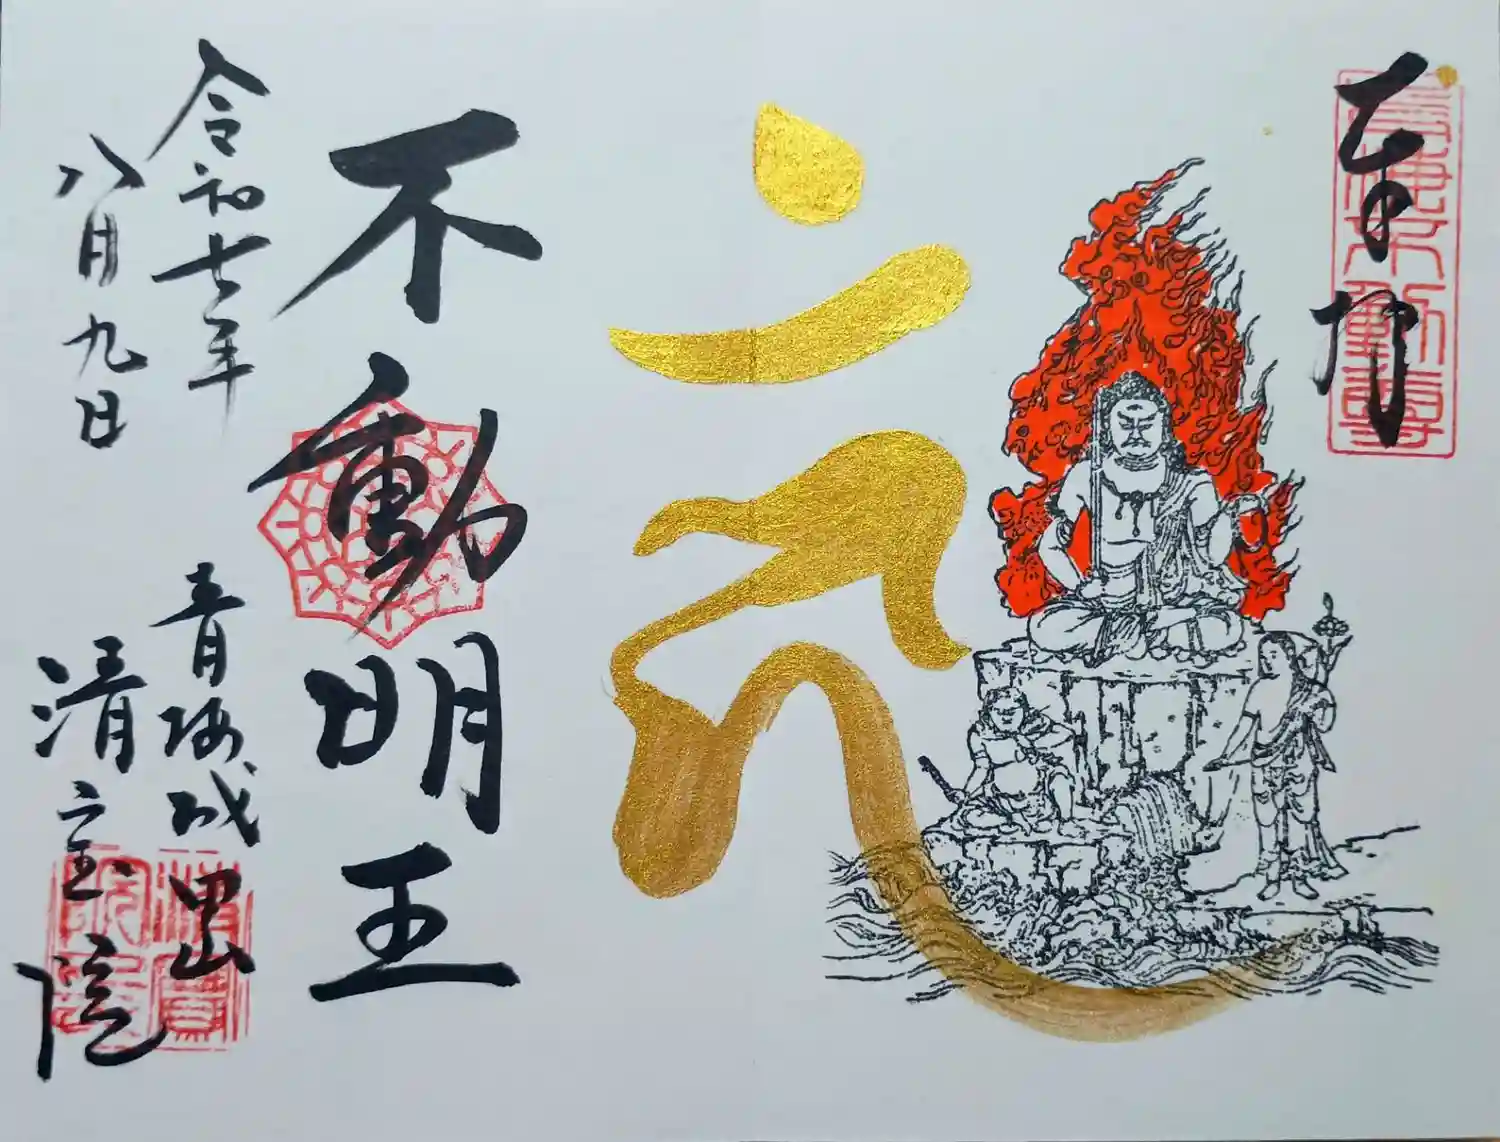 奉拝
青梅不動尊
不動明王
令和七年
八月九日
青梅成田山
清宝院